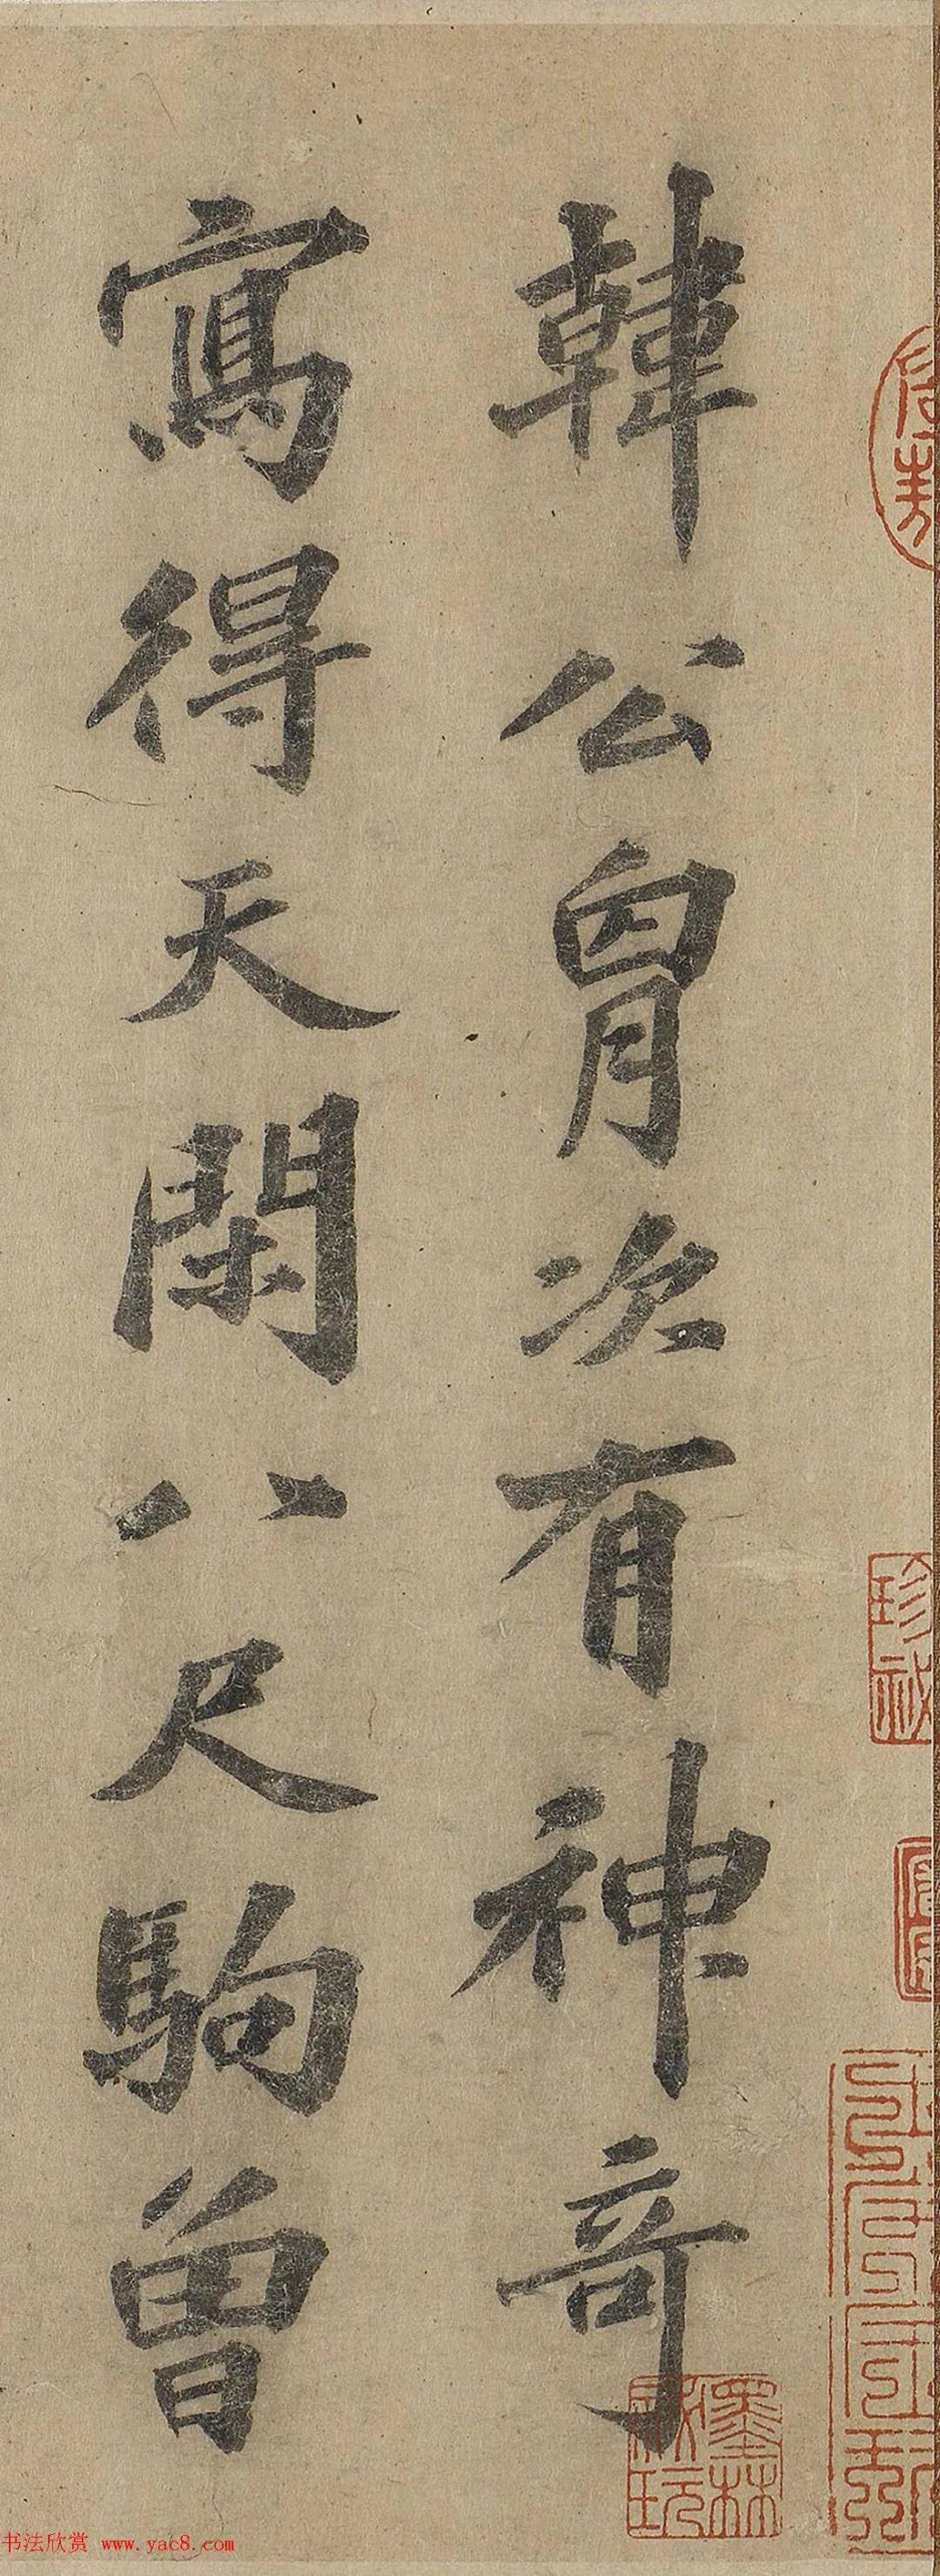 韓公胷次有神竒
寫得天閑八尺駒曾
珍祕
墨林祕玩
书法欣赏 www.yac8.com